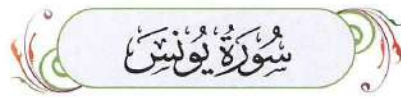 سُورَةُ يُونُسَ